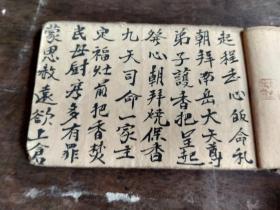 起程去心皈命礼
朝拜南岳大天尊
弟子護香把呈起
發心朝拜燒保香
九天司命一家主
定福灶前把香焚
民母厨房多有罪
蒙恩赦遠欲上倉